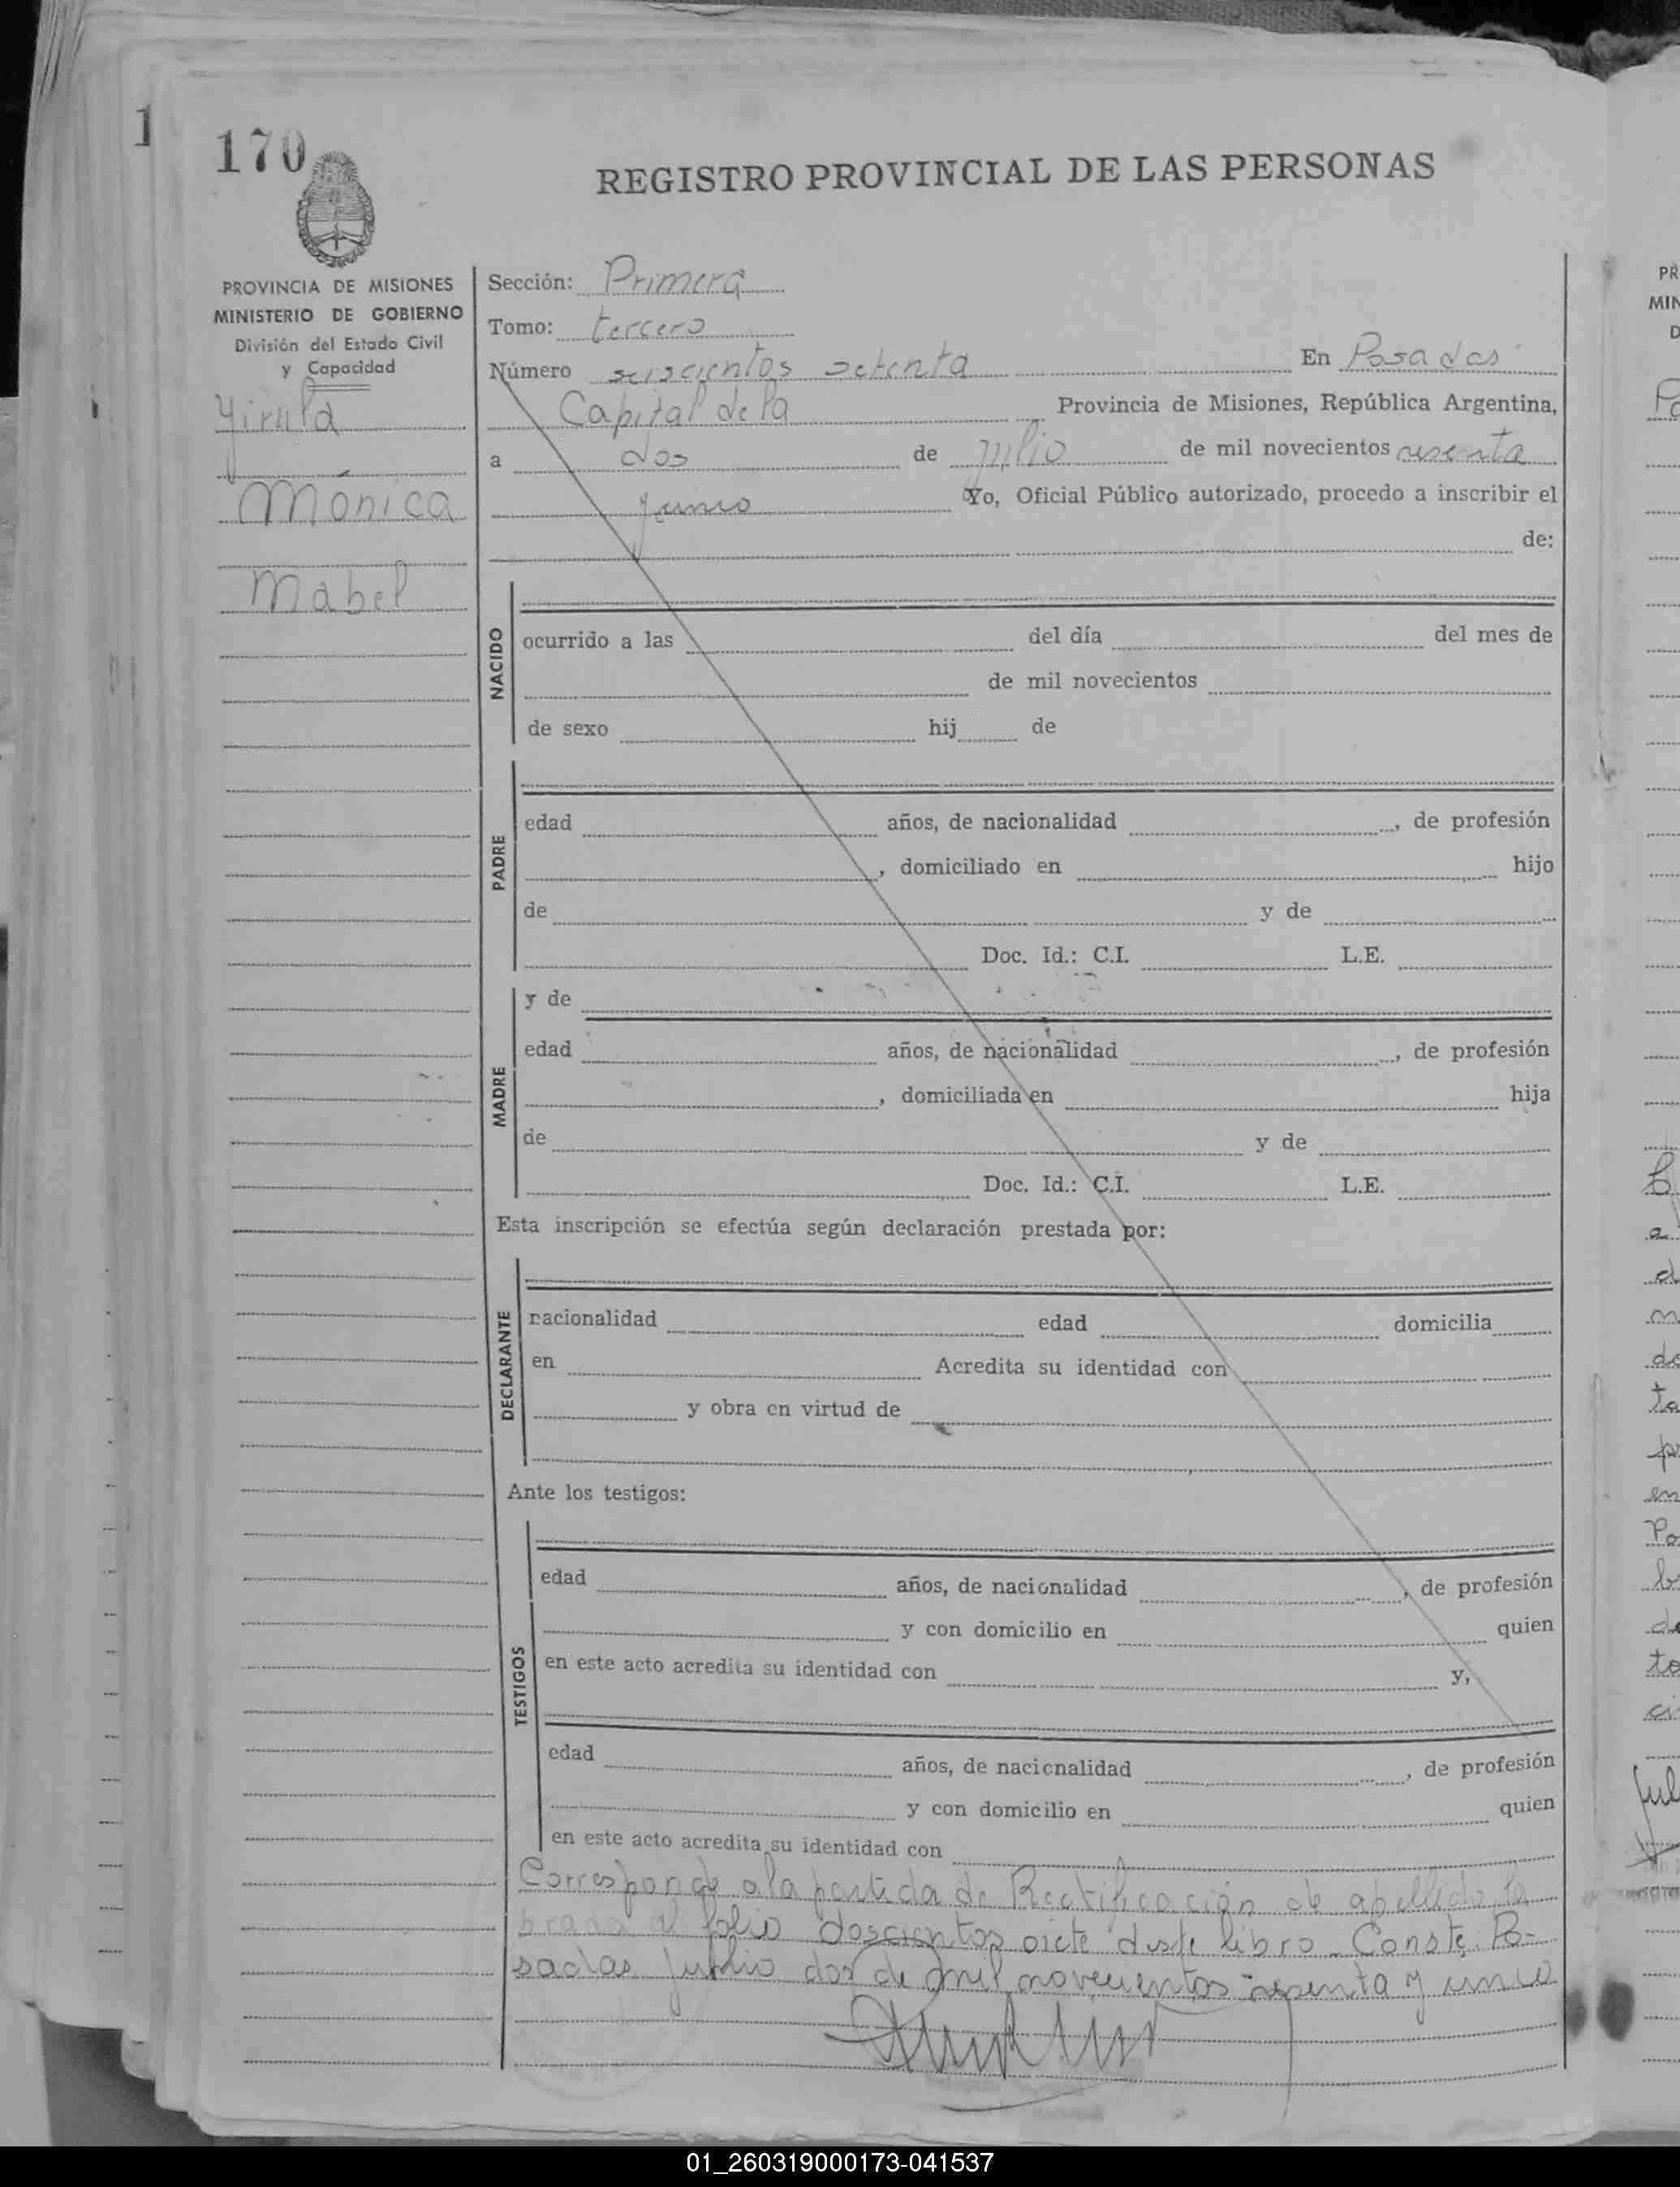 1
170
REGISTRO PROVINCIAL DE LAS PERSONAS
PROVINCIA DE MISIONES
MINISTERIO DE GOBIERNO
División del Estado Civil
y Capacidad
Mónica
Mabel
Sección: Primera
Tomo: tercero
Número seiscientos setenta En Posadas
Capital de la Provincia de Misiones, República Argentina,
a dos de julio de mil novecientos sesenta
y uno Yo, Oficial Público autorizado, procedo a inscribir el
de:
NACIDO
ocurrido a las del día del mes de
de mil novecientos
de sexo hij de
PADRE
edad años, de nacionalidad , de profesión
, domiciliado en hijo
de y de
Doc. Id.: C.I. L.E.
MADRE
y de
edad años, de nacionalidad , de profesión
, domiciliada en hija
de y de
Doc. Id.: C.I. L.E.
Esta inscripción se efectúa según declaración prestada por:
DECLARANTE
nacionalidad edad domicilia
en Acredita su identidad con
y obra en virtud de
Ante los testigos:
TESTIGOS
edad años, de nacionalidad , de profesión
y con domicilio en quien
en este acto acredita su identidad con y,
edad años, de nacionalidad , de profesión
y con domicilio en quien
en este acto acredita su identidad con
Corresponde a la partida de Rectificación de apellido, la
brada al folio doscientos siete deste libro. Conste. Po-
sadas, Julio dos de mil novecientos sesenta y uno
01_260319000173-041537